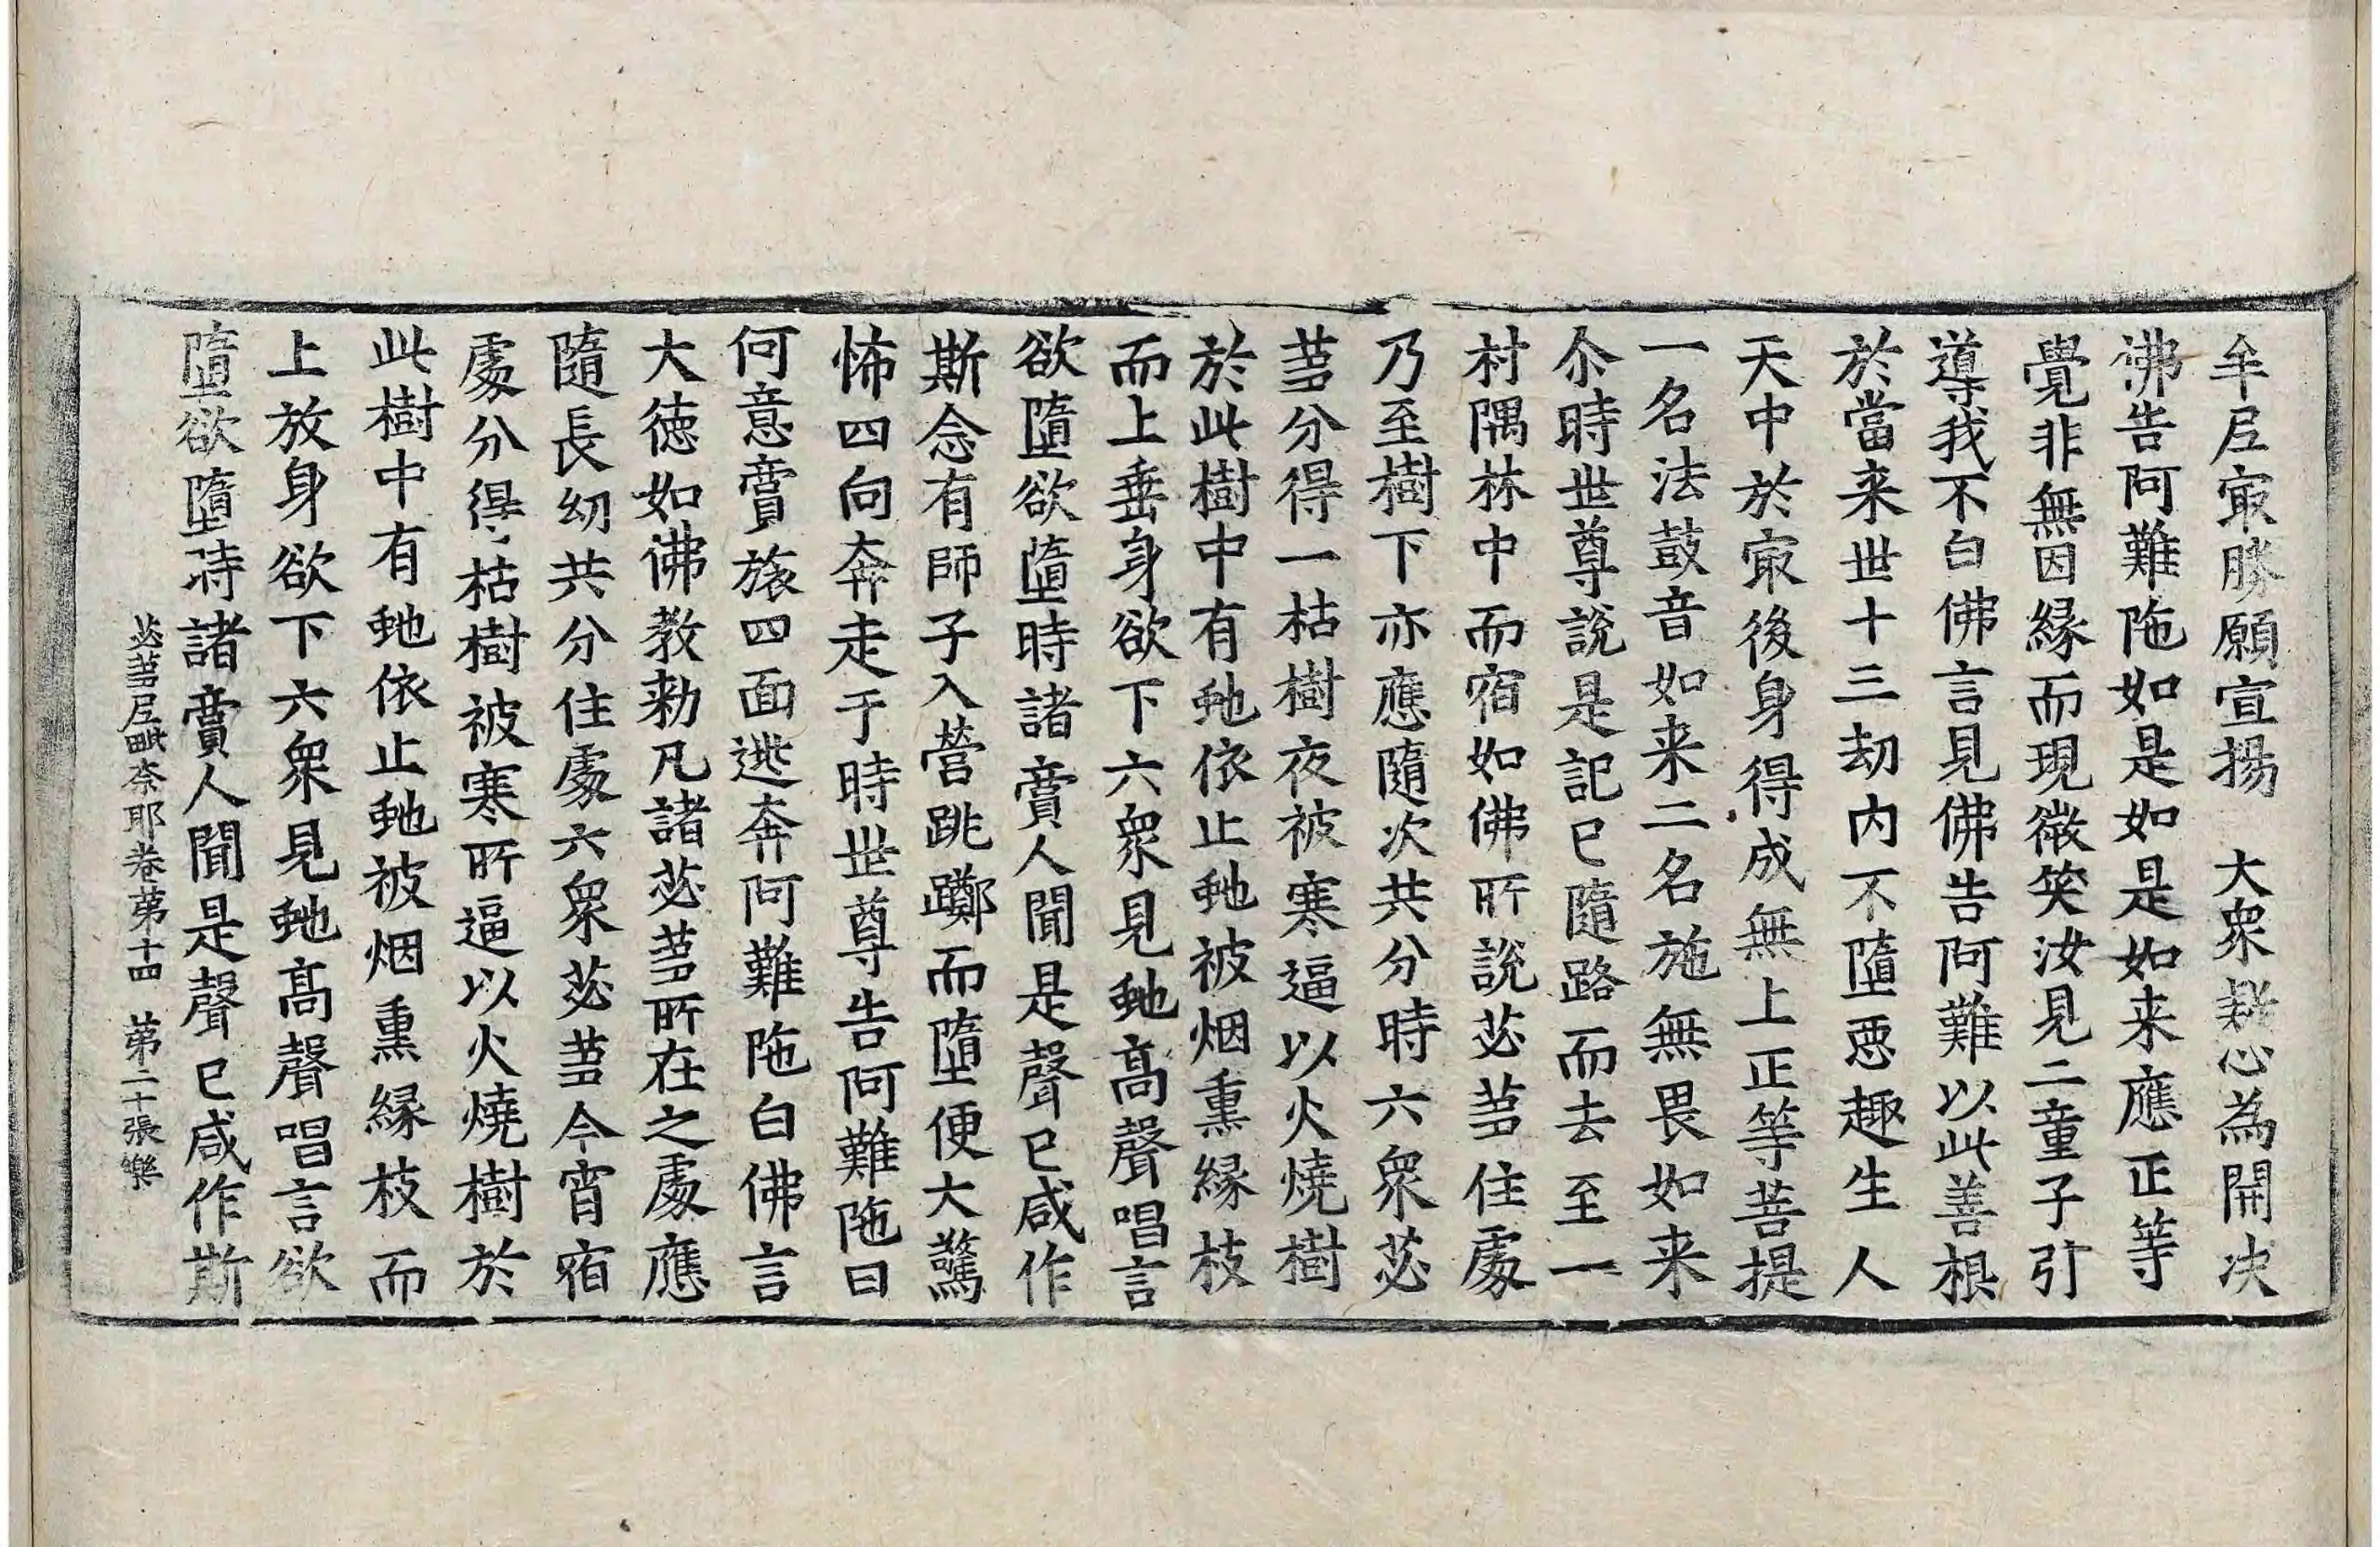 牟尼㝡勝願宣揚　大衆疑心為開决
佛告阿難陁如是如是如来應正等
覺非無因緣而現微笑汝見二童子引
導我不白佛言見佛告阿難以此善根
於當来世十三劫内不墮惡趣生人
天中於㝡後身得成無上正等菩提
一名法鼓音如来二名施無畏如来
尒時世尊說是記已隨路而去至一
村隅林中而宿如佛所說苾芻住處
乃至樹下亦應隨次共分時六衆苾
芻分得一枯樹夜被寒逼以火燒樹
於此樹中有虵依止虵被烟熏緣枝
而上垂身欲下六衆見虵高聲唱言
欲墮欲墮時諸賣人聞是聲已咸作
斯念有師子入營跳躑而墮便大驚
怖四向奔走于時世尊告阿難陁曰
何意賣旅四面逃奔阿難陁白佛言
大德如佛教勑凡諸苾芻所在之處應
隨長幼共分住處六衆苾芻今宵宿
處分得枯樹被寒所逼以火燒樹於
此樹中有虵依止虵被烟熏緣枝而
上放身欲下六衆見虵高聲唱言欲
墮欲墮時諸賣人聞是聲已咸作斯
苾芻尼毗奈耶卷第十四　第二十張樂